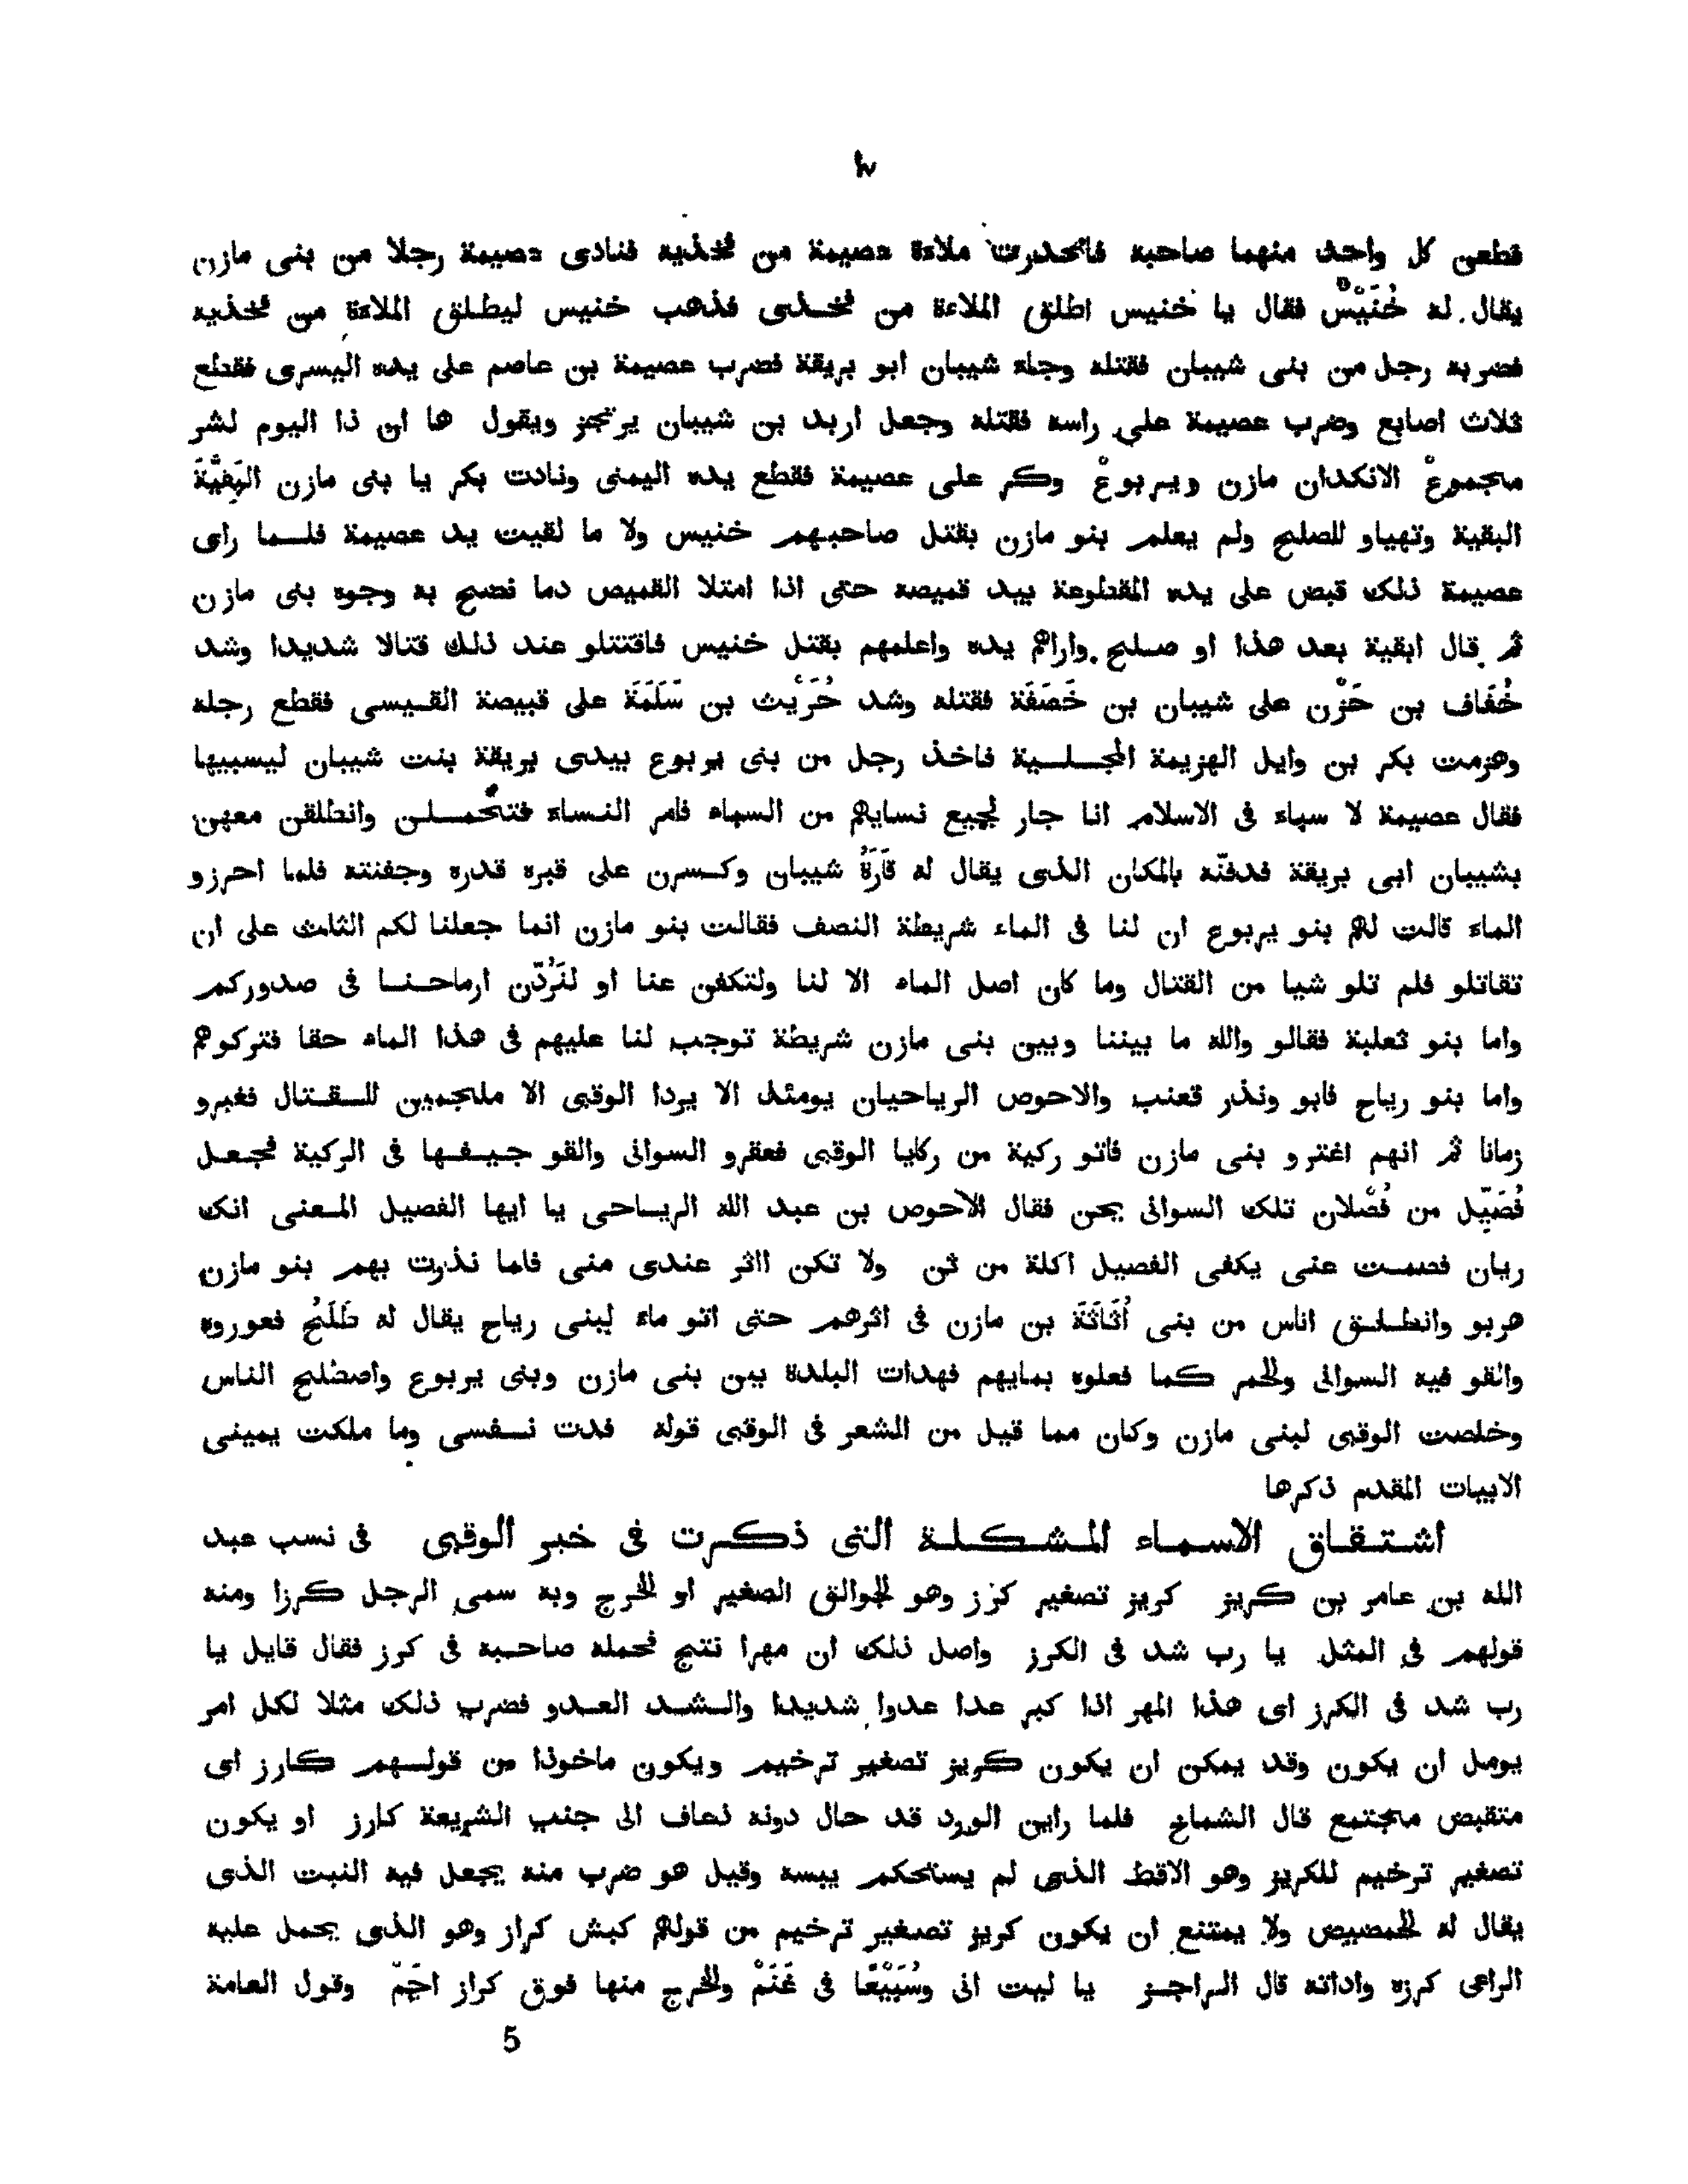 ١٧
فطعن كل واحد منهما صاحبه فانحدرت ملاءة عصيمة من فخذيه فنادى عصيمة رجلا من بنى مازن
يقال له خُنَيْسٌ فقال يا خنيس اطلق الملاءة من فخذى فذهب خنيس ليطلق الملاءة من فخذيه
فضربه رجل من بنى شيبان فقتله وجاء شيبان ابو بريقة فضرب عصيمة بن عاصم على يده اليسرى فقطع
ثلاث اصابع وضرب عصيمة على راسه فقتله وجعل اربد بن شيبان يرتجز ويقول ها ان ذا اليوم لشر
مجموعْ الانكدان مازن ويربوعْ وكر على عصيمة فقطع يده اليمنى ونادت بكر يا بنى مازن البَقِيَّةَ
البقية وتهياو للصلح ولم يعلم بنو مازن بقتل صاحبهم خنيس ولا ما لقيت يد عصيمة فلما راى
عصيمة ذلك قبض على يده المقطوعة بيد قميصه حتى اذا امتلا القميص دما نضح به وجوه بنى مازن
ثم قال ابقية بعد هذا او صلح واراهم يده واعلمهم بقتل خنيس فاقتتلو عند ذلك قتالا شديدا وشد
خُفَاف بن حَزْن على شيبان بن خَصَفَة فقتله وشد حُرَيْث بن سَلَمَة على قبيصة القيسى فقطع رجله
وهزمت بكر بن وايل الهزيمة المجلسية فاخذ رجل من بنى يربوع بيدى بريقة بنت شيبان ليسبيها
فقال عصيمة لا سباء فى الاسلام انا جار لجميع نسايهم من السباء فامر النساء فتحملن وانطلقن معهن
بشيبان ابى بريقة فدفنّه بالمكان الذى يقال له قَارَةُ شيبان وكسرن على قبره قدره وجفنته فلما احرزو
الماء قالت لهم بنو يربوع ان لنا فى الماء شريطة النصف فقالت بنو مازن انما جعلنا لكم الثلث على ان
تقاتلو فلم تلو شيا من القتال وما كان اصل الماء الا لنا ولتكفن عنا او لنَرُدّن ارماحنا فى صدوركم
واما بنو ثعلبة فقالو والله ما بيننا وبين بنى مازن شريطة توجب لنا عليهم فى هذا الماء حقا فتركوهم
واما بنو رياح فابو ونذر قعنب والاحوص الرياحيان يومئذ الا يردا الوقبى الا ملجمين للقتال فغبرو
زمانا ثم انهم اغترو بنى مازن فاتو ركية من ركايا الوقبى فعقرو السوانى والقو جيفها فى الركية فجعل
فُصَيّل من فُصْلان تلك السوانى يحن فقال الاحوص بن عبد الله الرياحى يا ايها الفصيل المعنى انك
ريان فصمت عنى يكفى الفصيل اكلة من ثن ولا تكن ااثر عندى منى فلما نذرت بهم بنو مازن
هربو وانطلق اناس من بنى أُثَاثَةَ بن مازن فى اثرهم حتى اتو ماء لبنى رياح يقال له طَلَحُ فعوروه
والقو فيه السوانى والحمر كما فعلوه بمايهم فهدات البلدة بين بنى مازن وبنى يربوع واصطلح الناس
وخلصت الوقبى لبنى مازن وكان مما قيل من الشعر فى الوقبى قوله فدت نفسى وما ملكت يمينى
الابيات المقدم ذكرها
اشتقاق الاسماء المشكلة التى ذكرت فى خبر الوقبى فى نسب عبد
الله بن عامر بن كريز كريز تصغير كرز وهو الجوالق الصغير او الخرج وبه سمى الرجل كرزا ومنه
قولهم فى المثل يا رب شد فى الكرز واصل ذلك ان مهرا نتج فحمله صاحبه فى كرز فقال قايل يا
رب شد فى الكرز اى هذا المهر اذا كبر عدا عدوا شديدا والشد العدو فضرب ذلك مثلا لكل امر
يومل ان يكون وقد يمكن ان يكون كريز تصغير ترخيم ويكون ماخوذا من قولهم كارز اى
متقبض مجتمع قال الشماخ فلما راين الورد قد حال دونه ذعاف الى جنب الشريعة كارز او يكون
تصغير ترخيم للكريز وهو الاقط الذى لم يستحكم يبسه وقيل هو ضرب منه يجعل فيه النبت الذى
يقال له الحمصيص ولا يمتنع ان يكون كريز تصغير ترخيم من قولهم كبش كراز وهو الذى يحمل عليه
الراعى كرزه واداته قال الراجز يا ليت انى وسُبَيْعًا فى غَنَمْ والخرج منها فوق كراز اجَمّ وقول العامة
5